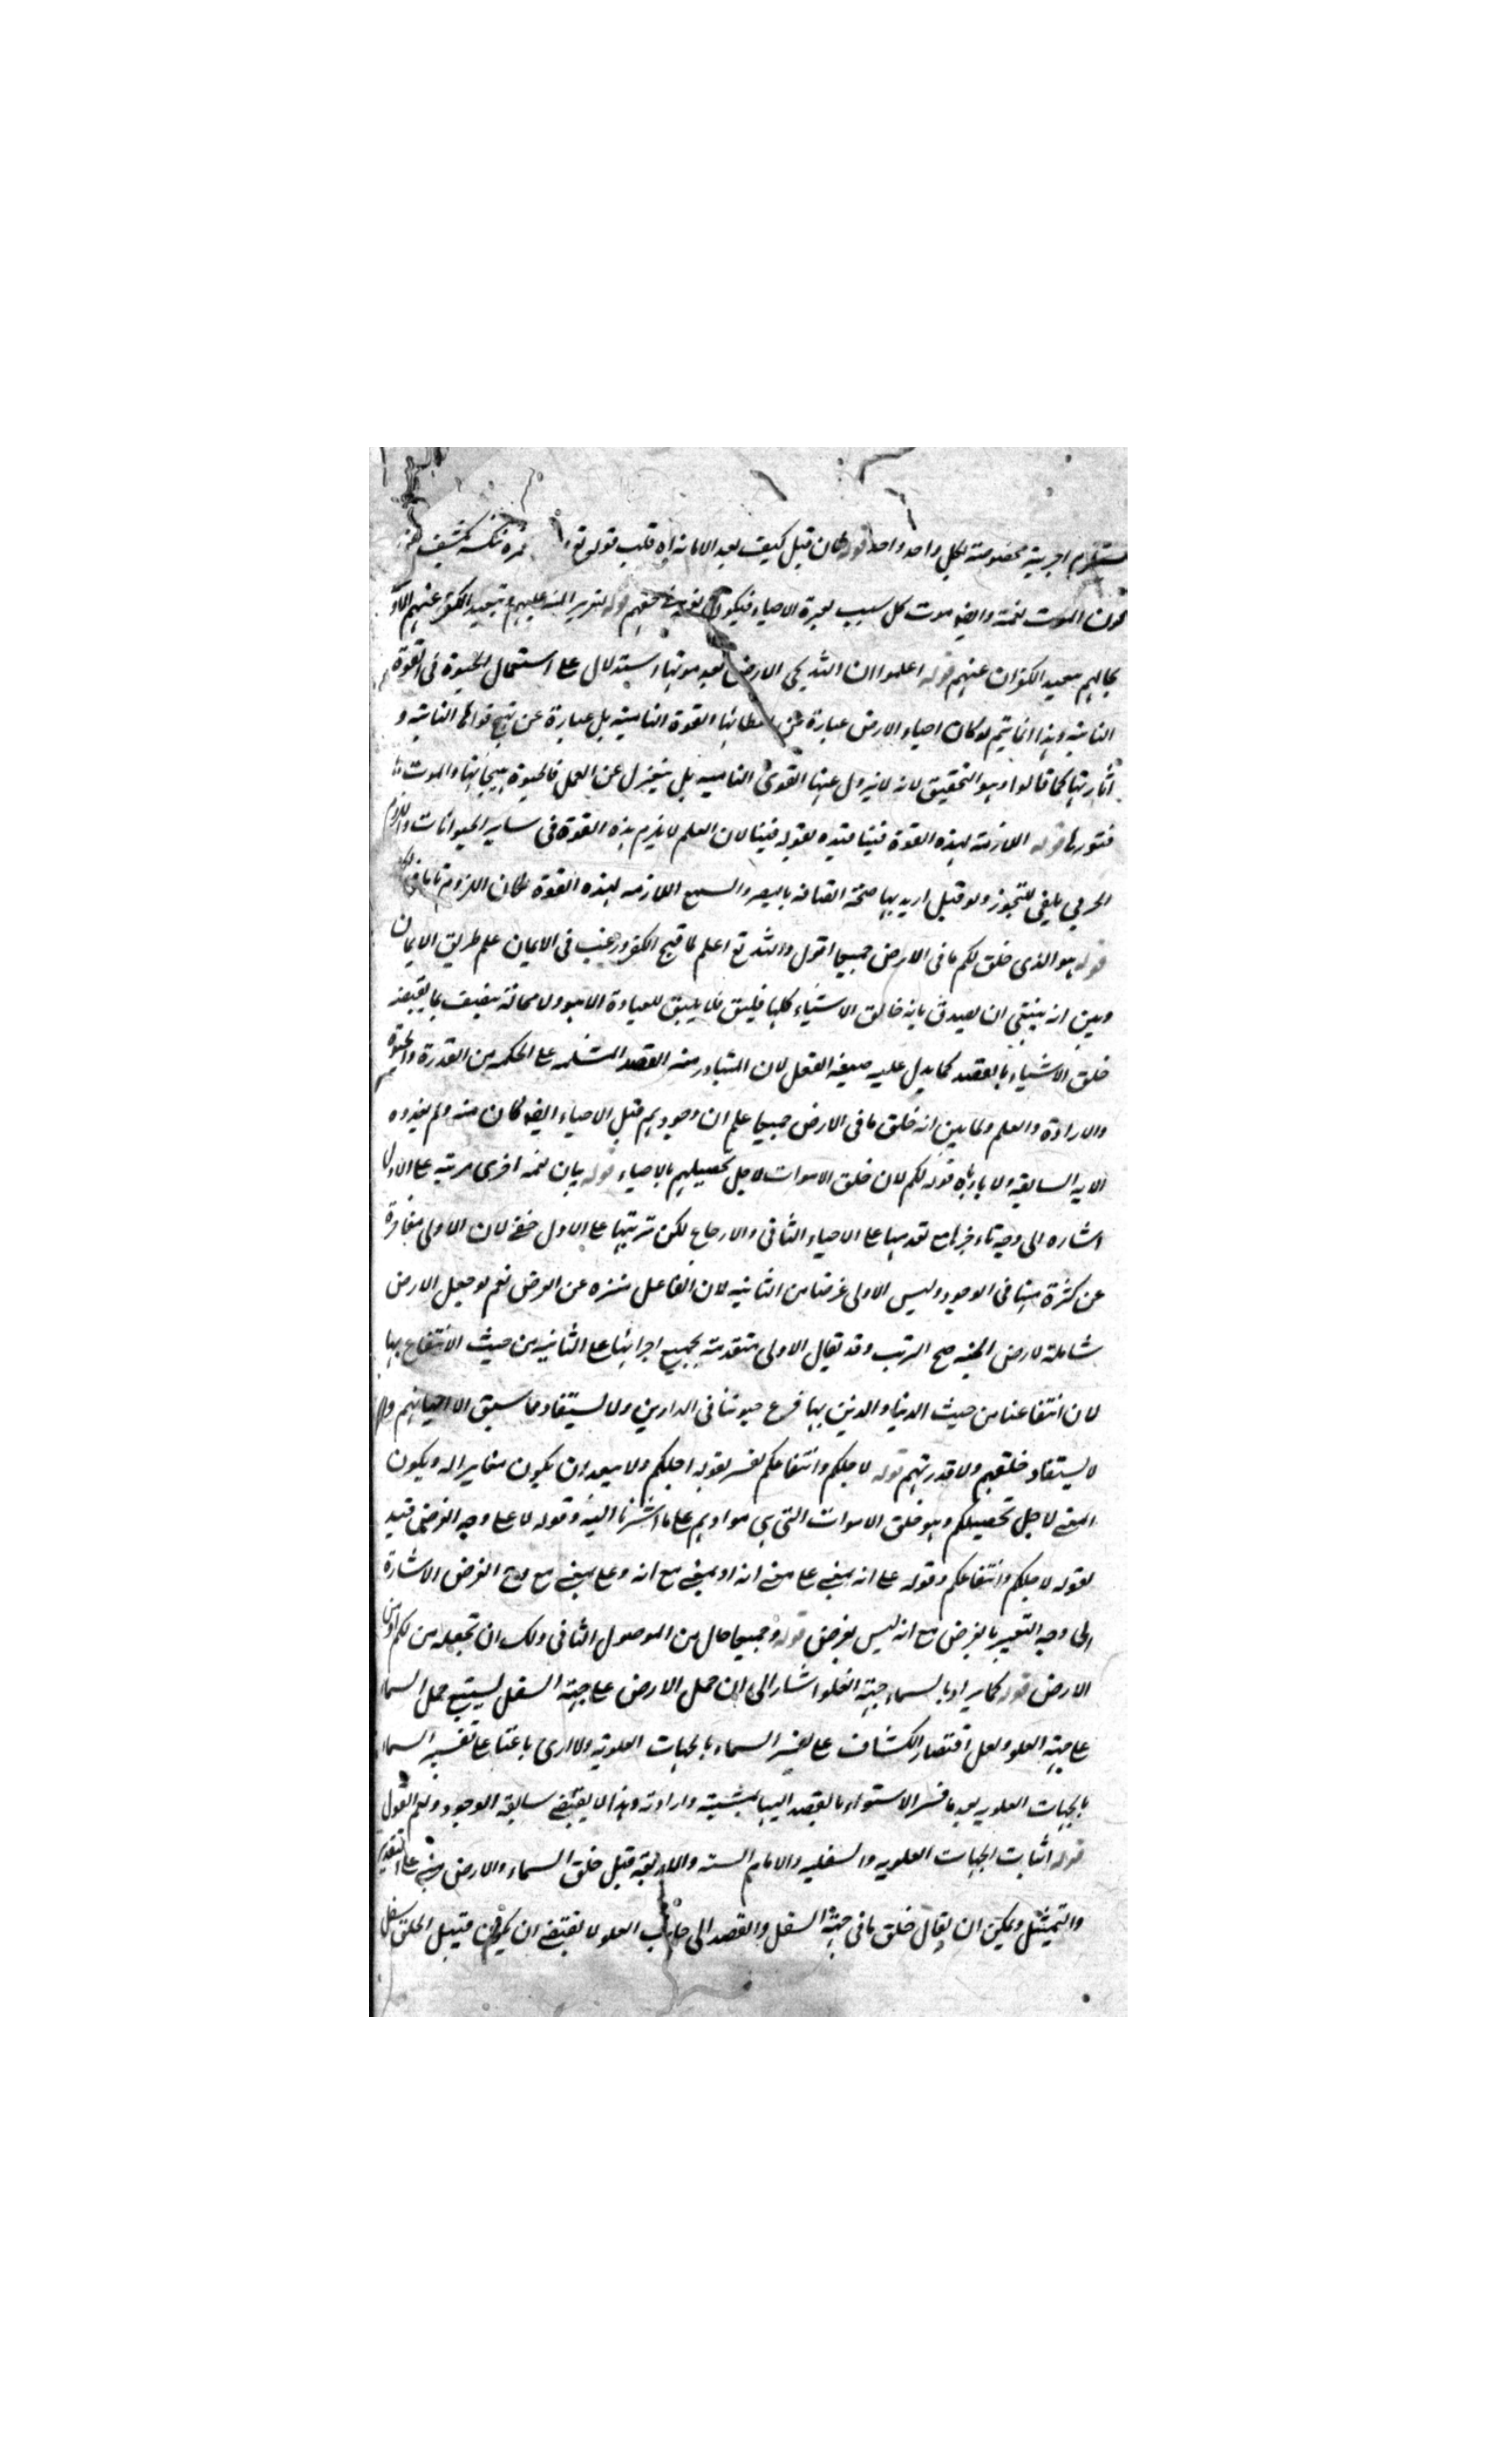 مستلزم اجزية مخصوصة لكل واحد واحد قوله فان قيل كيف يعد الاماتة اه قلت قوله تع
كون الموت نعمة وايضا موت كل سبب لعبرة الاحياء فيكون نعمة في حقهم قوله لتقرير المنة عليهم وتبعيد الكفر عنهم
بحالهم معيد الكفران عنهم قوله اعلموا ان الله يحي الارض بعد موتها استدلال على استعمال الحيوة في القوة
النامية وهذا انما يتم لو كان احياء الارض عبارة عن اعطائها القوة النامية بل عبارة عن تهيج قواها النامية و
اثارتها كما قالوا وهو التحقيق لانه لا يزول عنها القوى النامية بل ينعزل عن العمل فالحيوة هيجانها والموت
فتورها قوله اللازمة لهذه القوة فينا قيده بقوله فينا لان العلم لا يلزم هذه القوة في ساير الحيوانات واللزوم
الحرفي يلفى للتجوز ولو قيل اريد بها صحة اتصافه بالبصر والسمع اللازمه لهذه القوة لكان اللزوم تاما
قوله هو الذي خلق لكم ما في الارض جميعا اقول والله تع اعلم لما قبح الكفر ورغب في الايمان علم طريق الايمان
وبين انه ينبغي ان يصدق بانه خالق الاشياء كلها فليق فلا يليق للعبادة الا هو ولا محالة يتصف بما يقتضيه
خلق الاشياء بالقصد كما يدل عليه صيغه الفعل لان المتبادر منه القصد المشتمله على الحكمه من القدرة والحيوة
والارادة والعلم ولما بين انه خلق ما في الارض جميعا علم ان وجودهم قبل الاحياء ايضا كان منه ولم يفده
الايه السابقه والا يأباه قوله لكم لان خلق الاموات لاجل تحصيلهم بالاحياء قوله بيان نعمة اخرى مرتبه على الاولى
اشاره الى وجه تاخيرها مع تقدمها على الاحياء الثاني والارجاع لكن ترتيبها على الاول خفي لان الاولى متاخرة
عن كثرة منها في الوجود وليس الاولى غرضا من الثانيه لان الفاعل منزه عن الغرض نعم لو جعل الارض
شاملة لارض الجنه صح الترتب وقد يقال الاولى متقدمة بجميع اجزائها على الثانيه من حيث الانتفاع بها
لان انتفاعنا من حيث الدنيا والدين بها فرع حيوتنا في الدارين ولا يستفاد مما سبق الا احيائهم و
لا يستفاد خلقهم ولا قدرتهم قوله لاجلكم وانتفاعكم فسر لقوله اجلكم ولا يبعد ان يكون مغايرا له ويكون
المعنى لاجل تحصيلكم وهو خلق الاموات التي هي موادهم على ما اشرنا اليه وقوله لا على وجه الغرض قيد
لقوله لاجلكم وانتفاعكم وقوله على انه بمعنى على معنى انه او بمعنى مع انه وعلى بمعنى مع وجه الغرض الاشارة
الى وجه التعبير بالغرض مع انه ليس بغرض قوله وجميعا حال من الموصول الثاني ولك ان تجعله من لكم او من
الارض قوله كما يراد بالسماء جهة العلو اشار الى ان حمل الارض على جهة السفل يستتبع حمل السماء
على جهة العلو ولعل اقتصار الكشاف على تفسير السماء بالجهات العلوية والاولى باعتبار على تفسير السماء
بالجهات العلويه بعد ما فسر الاستواء بالقصد اليها بمشيته وارادته وهذا لا يقتضي سابقه الوجود ولعم القول
قوله اثبات الجهات العلويه والسفليه والايام الستة والاربعة قبل خلق السماء والارض مبني على التقدير
والتمثيل ويمكن ان يقال خلق ما في جهة السفل والقصد الى جانب العلو لا يقتضي ان يكون قبيل الخلق سفل